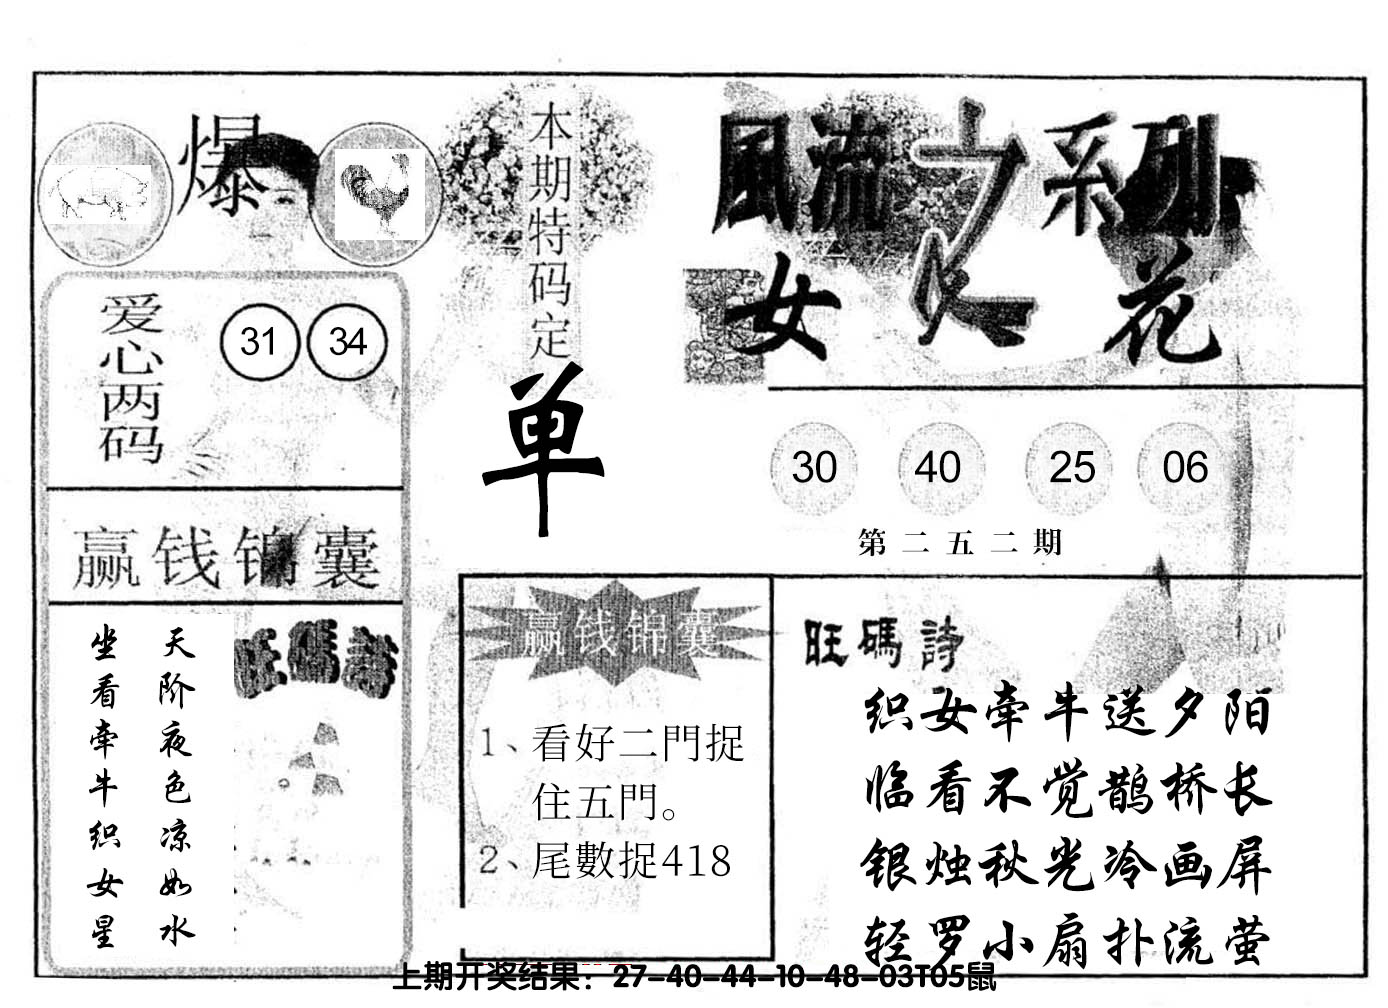 爆
爱心两码
31 34
赢钱锦囊
天阶夜色凉如水
坐看牵牛织女星
旺碼詩
本期特码定
单
風流之系列
女人花
30 40 25 06
第二五二期
赢钱锦囊
1、看好二門捉
住五門。
2、尾數捉418
旺碼詩
织女牵牛送夕阳
临看不觉鹊桥长
银烛秋光冷画屏
轻罗小扇扑流萤
上期开奖结果：27-40-44-10-48-03T05鼠